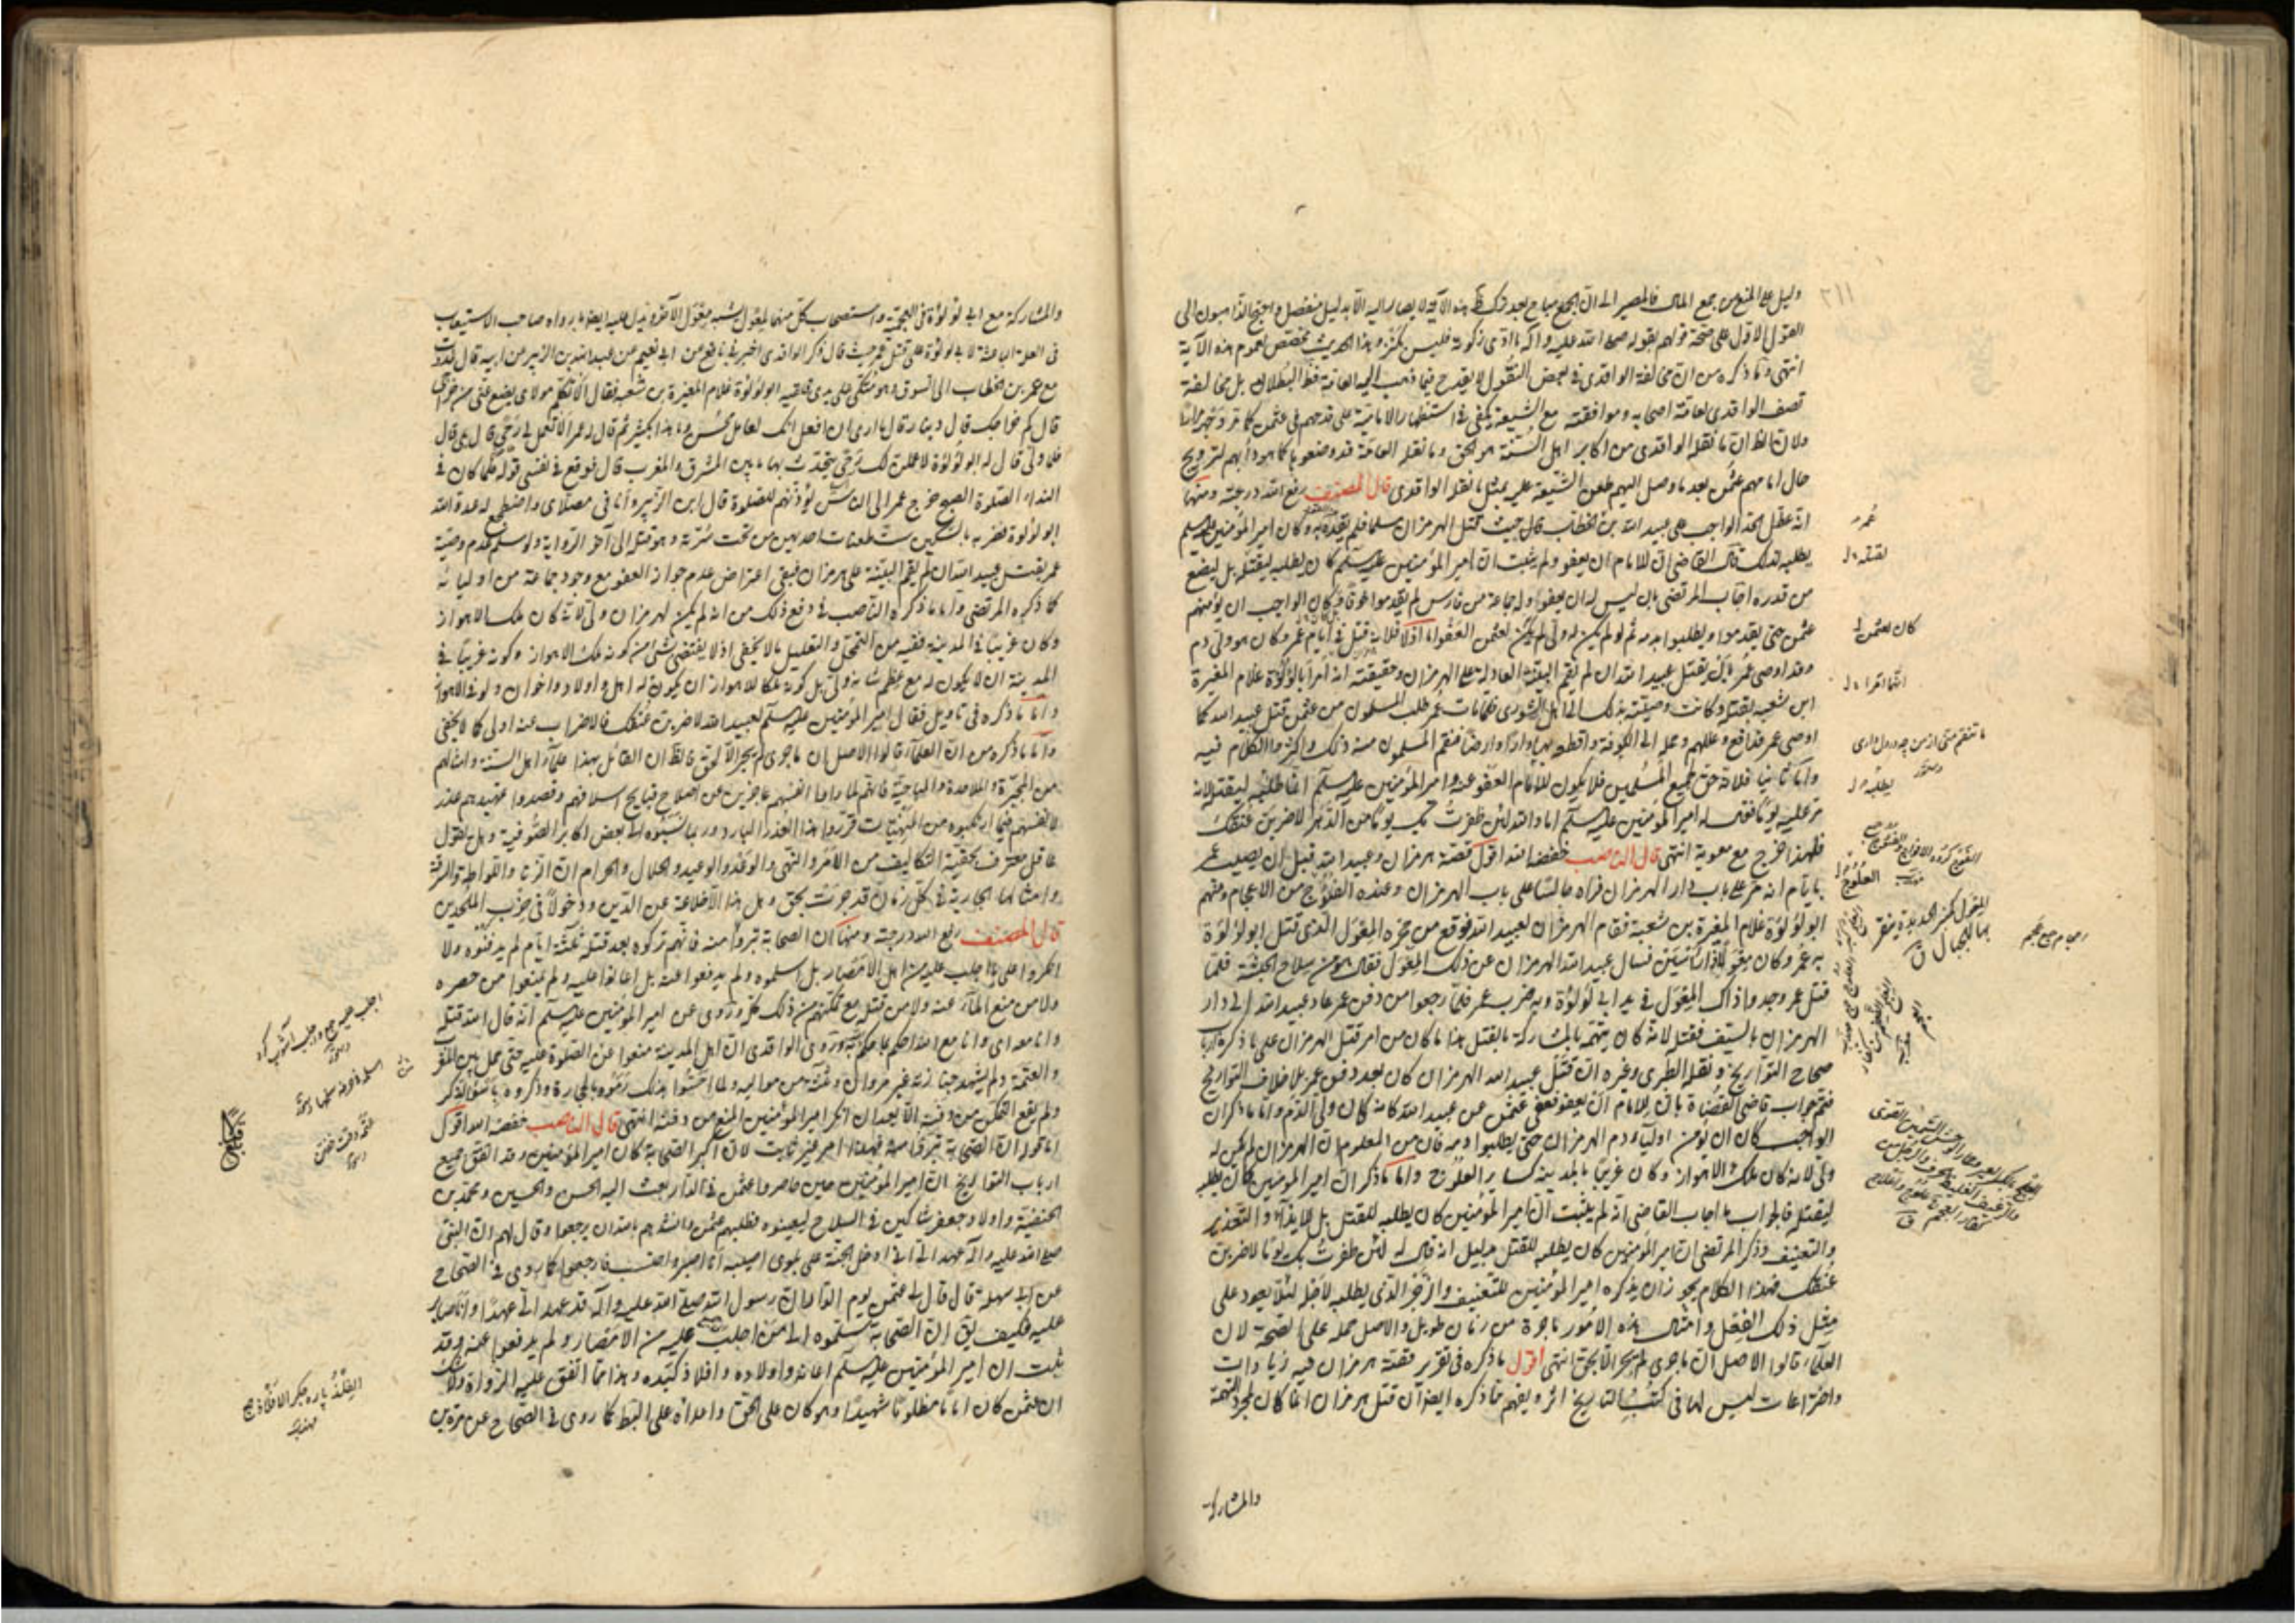 دليل على المنع من جمع المال فالمصير الى ان الجمع مباح بعد هذه الآية لا يصار اليه الا بدليل منفصل واحتج الذاهبون الى
القول الاول على صحة قولهم بقوله صلى الله عليه وآله ما ادى زكوته فليس بكنز وهذا الحديث مخصص لعموم هذه الآية
انتهى وما ذكره من ان مخالفة الواقدى فى بعض النقول لا يقدح فيما ذهب اليه العامة فظ البطلان بل مخالفة
الواقدى لعامة اصحابه وموافقته مع الشيعة يكفى فى استظهار الامامية على قدحهم فى عثمن كما مر
ولان الظ ان ما نقله الواقدى من اكابر اهل السنة هو الحق وما نقله العامة قد وضعوها كما هو دأبهم لترويج
حال امامهم عثمن بعد ما وصل اليهم طعن الشيعة عليه بمثل ما نقله الواقدى قال المصنف رفع الله درجته ومنها
انه عطل الحد الواجب على عبيد الله بن الخطاب حيث قتل الهرمزان مسلما فلم يقده به وكان امير المؤمنين عليه السلم
يطلبه لذلك قال القاضى ان للامام ان يعفو ولم يثبت ان امير المؤمنين عليه السلم كان يطلبه ليقتله بل ليضع
من قدره اجاب المرتضى بان ليس له ان يعفو وله جماعة من فارس لم يقدموا خوفا وكان الواجب ان يؤمنهم
عثمن حتى يقدموا ويطلبوا بدمه ثم لو لم يكن له ولى لم يكن لعثمن العفو اما اولا فلانه قتل فى ايام عمر وكان هو ولى دم
وقد اوصى عمر بان يقتل عبيد الله ان لم تقم البينة العادلة على الهرمزان وحقيقته انه امر ابا لؤلؤة غلام المغيرة
ابن شعبه بقتله وكانت وصيته بذلك الى اهل الشورى فلما مات عمر طلب المسلمون من عثمن قتل عبيد الله كما
اوصى عمر فدافع وعللهم وحمله الى الكوفة واقطعه بها دارا وارضا فنقم المسلمون منه ذلك واكثروا الكلام فيه
واما ثانيا فلانه حق لجميع المسلمين فلا يكون للامام العفو عنه وامير المؤمنين عليه السلم انما طلبه ليقتله لانه
مر عليه يوما فقال له امير المؤمنين عليه السلم اما والله لئن ظفرت بك يوما من الدهر لاضربن عنقك
فلهذا خرج مع معوية انتهى قال الناصب خفضه الله اقول قصة هرمزان وعبيد الله قبل ان يصلت عمر
بايام انه مر على باب دار الهرمزان فراه جالسا على باب الهرمزان وعنده العلوج من الاعجام ومنهم
ابو لؤلؤة غلام المغيرة بن شعبة فقام الهرمزان لعبيد الله فوقع من حجره المغول الذى قتل ابو لؤلؤة
به عمر وكان مغولا ذا رأسين فسال عبيد الله الهرمزان عن ذلك المغول فقال هو من سلاح الحبشة فلما
قتل عمر وجدوا ذاك المغول فى يد ابى لؤلؤة وبه ضرب عمر فلما رجعوا من دفن عمر عاد عبيد الله الى دار
الهرمزان بالسيف فقتله لانه كان يتهمه بالمشاركة بالقتل هذا ما كان من امر قتل الهرمزان على ما ذكره ارباب
صحاح التواريخ ونقله الطبرى وغيره ان قتل عبيد الله الهرمزان كان بعد دفن عمر بلا خلاف التواريخ
فتم جواب قاضى القضاة بان للامام ان يعفو فعفى عثمن عن عبيد الله لانه كان ولى الدم واما ما ذكر ان
الواجب كان ان يؤمن اولياء دم الهرمزان حتى يطلبوا دمه فان من المعلوم ان الهرمزان لم يكن له
ولى لانه كان ملك الاهواز وكان غريبا بالمدينة كساير العلوج واما ما ذكر ان امير المؤمنين كان يطلبه
ليقتله فالجواب ما اجاب القاضى انه لم يثبت ان امير المؤمنين كان يطلبه للقتل بل للايذاء والتعذير
والتعنيف وذكر المرتضى ان امير المؤمنين كان يطلبه للقتل بدليل انه قال له لئن ظفرت بك يوما لاضربن
عنقك فهذا الكلام يجوز ان يذكره امير المؤمنين للتعنيف والزجر الذى يطلبه لاجله لئلا يعود على
مثل ذلك الفعل وامثال هذه الامور ماجرة من زمان طويل والاصل حمله على الصحة لان
العلماء قالوا الاصل ان ما جرى لم يجر الا بحق انتهى اقول ما ذكره فى تقرير قصة هرمزان فيه زيادات
واختراعات ليس لها فى كتب التاريخ اثر ويفهم مما ذكره ايضا ان قتل هرمزان انما كان لمجرد التهمة
والمشاركة
٢١١
عمر
لقتله
كان لعثمن
يطلبه
العلوج
والمشاركة مع ابى لؤلؤة فى العجمية واستصحاب كل منهما لمغول يشبه مغول الآخر ويدل عليه ايضا ما رواه صاحب الاستيعاب
فى العلة الباعثة لابى لؤلؤة على قتل عمر حيث قال ذكر الواقدى اخبرنى نافع عن ابى نعيم عن عبد الله بن الزبير عن ابيه قال غدوت
مع عمر بن الخطاب الى السوق وهو متكئ على يدى فلقيه ابو لؤلؤة غلام المغيرة بن شعبه فقال الا تكلم مولاى يضع عنى من خراجى
قال كم خراجك قال دينار قال ما ارى ان افعل انك لعامل محسن وما هذا بكثير ثم قال له عمر الا تعمل لى رحى قال بلى قال
فلما ولى قال له ابو لؤلؤة لاعملن لك رحى يتحدث بها ما بين المشرق والمغرب قال فوقع فى نفسى قوله فلما كان فى
النداء الصلوة الصبح خرج عمر الى الناس يؤذنهم للصلوة قال ابن الزبير وانا فى مصلاى واضطجع له عدو الله
ابو لؤلؤة فضربه بالسكين ست طعنات احديهن من تحت سرته وهو قتله الى آخر الرواية ولو سلم عدم وصية
عمر بقتل عبيد الله ان لم يقم البينة على هرمزان فبقى اعتراض عدم جواز العفو مع وجود جماعة من اوليائه
كما ذكره المرتضى واما ما ذكره الناصب فى دفع ذلك من انه لم يكن لهرمزان ولى لانه كان ملك الاهواز
وكان غريبا فى المدينة ففيه من التمحل والتعليل ما لا يخفى اذ لا يقتضى شئ من كونه ملك الاهواز وكونه غريبا فى
المدينة ان لا يكون له مع عظم شانه ولى بل كونه ملكا للاهواز ان يكون له اهل واولاد واخوان ولو فى الاهواز
واما ما ذكره فى تاويل فقال امير المؤمنين عليه السلم لعبيد الله لاضربن عنقك فالاضراب عنه اولى كما لا يخفى
واما ما ذكره من ان العلماء قالوا الاصل ان ما جرى لم يجر الا بحق فالظ ان القائل بهذا علماء اهل السنة وامثالهم
من المجبرة والملاحدة والمباحية فانهم لما راوا انفسهم عاجزين عن اصلاح قبايح اسلافهم وقصدوا تمهيدهم عذر
لانفسهم فيما ارتكبوه من المنهيات قرروا هذا العذر البارد وربما نسبوه الى بعض اكابر الصوفية وهل يقول
عاقل معترف بحقية التكاليف من الامر والنهى والوعد والوعيد والحلال والحرام ان الزنا واللواط والسرقة
وامثالها الجارية فى كل زمان قد جرت بحق وهل هذا الا خلاعة عن الدين ودخولا فى حزب الملحدين
قال المصنف رفع الله درجته ومنها ان الصحابة تبرؤا منه فانهم تركوه بعد قتله ثلثة ايام لم يدفنوه ولا
انكروا على من اجلب عليه من اهل الامصار بل اسلموه ولم يدفعوا عنه بل اعانوا عليه ولم يمنعوا من حصره
ولا من منع الماء عنه ولا من قتله مع تمكنهم من ذلك كله وروى عن امير المؤمنين عليه السلم انه قال الله قتله
وانا معه وروى الواقدى ان اهل المدينة منعوا عن الصلوة عليه حتى حمل بين المغرب
والعتمة ولم يشهد جنازته غير مروان وثلثة من مواليه ولما احسوا بذلك رموه بالحجارة وذكروه باسوء الذكر
ولم يقع التمكن من دفنه الا بعد ان انكر امير المؤمنين المنع من دفنه انتهى قال الناصب خفضه الله اقول
اما قوله ان الصحابة تبرؤا منه فهذا امر غير ثابت لان اكبر الصحابة كان امير المؤمنين وقد اتفق جميع
ارباب التواريخ ان امير المؤمنين حين حاصروا عثمن فى الدار بعث اليه الحسن والحسين ومحمد بن
الحنفية واولاد جعفر شاكين فى السلاح ليعينوه فطلبهم عثمن وانشدهم بالله ان يرجعوا وقال لهم ان النبى
صلى الله عليه وآله عهد الى انى ادخل الجنة على بلوى اصيبه انا اصبر واحتسب فارجعوا كما روى فى الصحاح
عن ابى سهلة قال قال لى عثمن يوم الدار ان رسول الله صلى الله عليه وآله قد عهد الى عهدا وانا صابر
عليه فكيف يق ان الصحابة سلموه الى من اجلب عليه من الامصار ولم يدفعوا عنه وقد
ثبت ان امير المؤمنين عليه السلم اعانه واولاده وافلاذ كبده وهذا مما اتفق عليه الرواة ولا شك
ان عثمن كان اماما مظلوما شهيدا وهو كان على الحق واعداؤه على البط كما روى فى الصحاح عن مرة بن